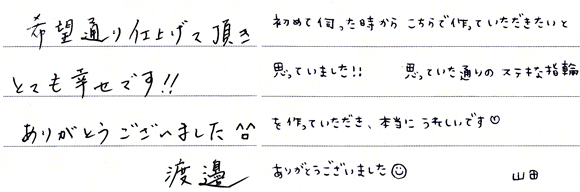 希望通り仕上げて頂き
とても幸せです!!
ありがとうございました^^
渡邉
初めて伺った時から こちらで作っていただきたいと
思っていました!! 思っていた通りの ステキな指輪
を作っていただき、本当に うれしいです♡
ありがとうございました☺
山田